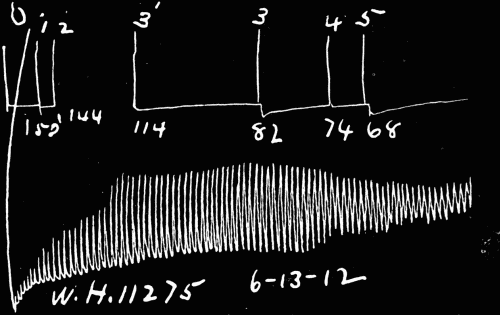 0 1 2 3' 3 4 5
150 144 114 82 74 68
W.H.11275 6-13-12